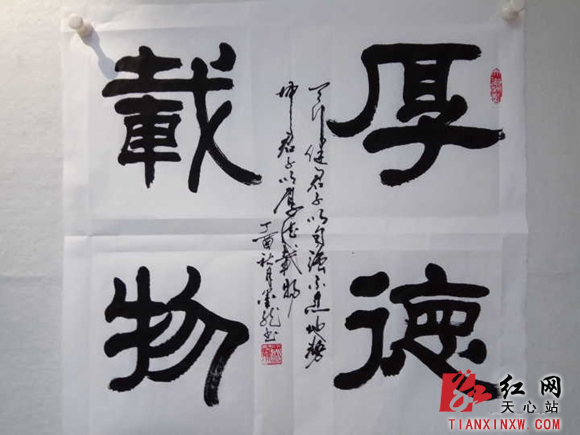 厚德
天行健君子以自强不息地势
坤君子以厚德载物
丁酉秋月墨龙书
載物
红网
天心站
TIANXINXW.COM